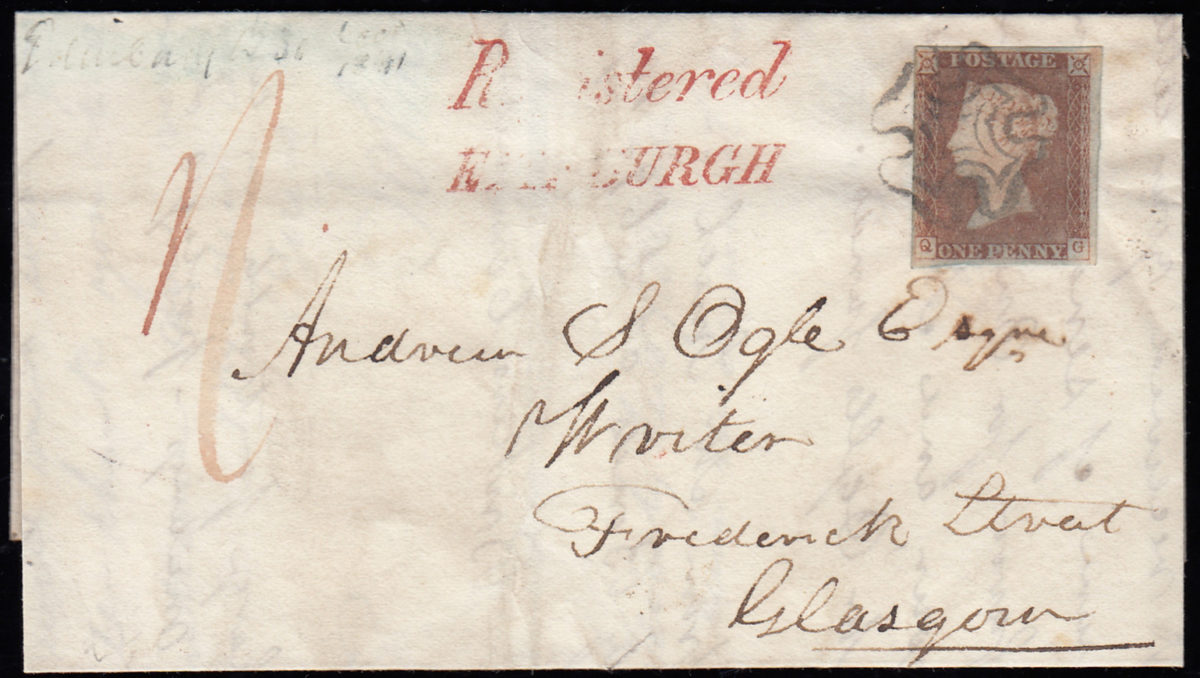 Edinburgh
1841
Registered
EDINBURGH
POSTAGE
ONE PENNY.
Q G
Andrew S Ogle Esqre
Writer
Frederick Street
Glasgow